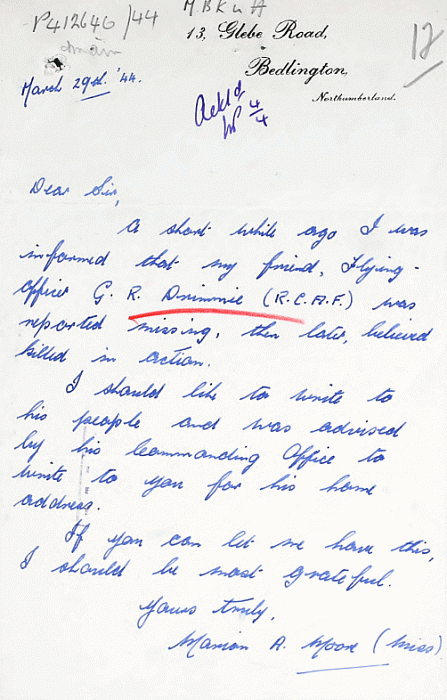 P412646/44
M.B.K. & A
12
13, Glebe Road,
Bedlington,
Northumberland.
March 29th. '44.
Ackd
4/4
Dear Sir,
A short while ago I was
informed that my friend, Flying-
Officer G. R. Drimmie (R.C.A.F.) was
reported missing, then later, believed
killed in action.
I should like to write to
his people and was advised
by his Commanding Office to
write to you for his home
address.
If you can let me have this,
I should be most grateful.
Yours truly,
Marion A. Moor (Miss)